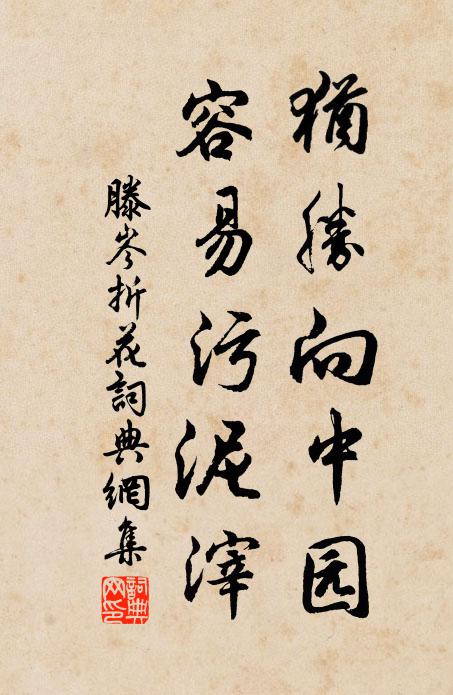 猶勝向中园
容易污泥滓
滕岑折花詞典網集
詞典网印